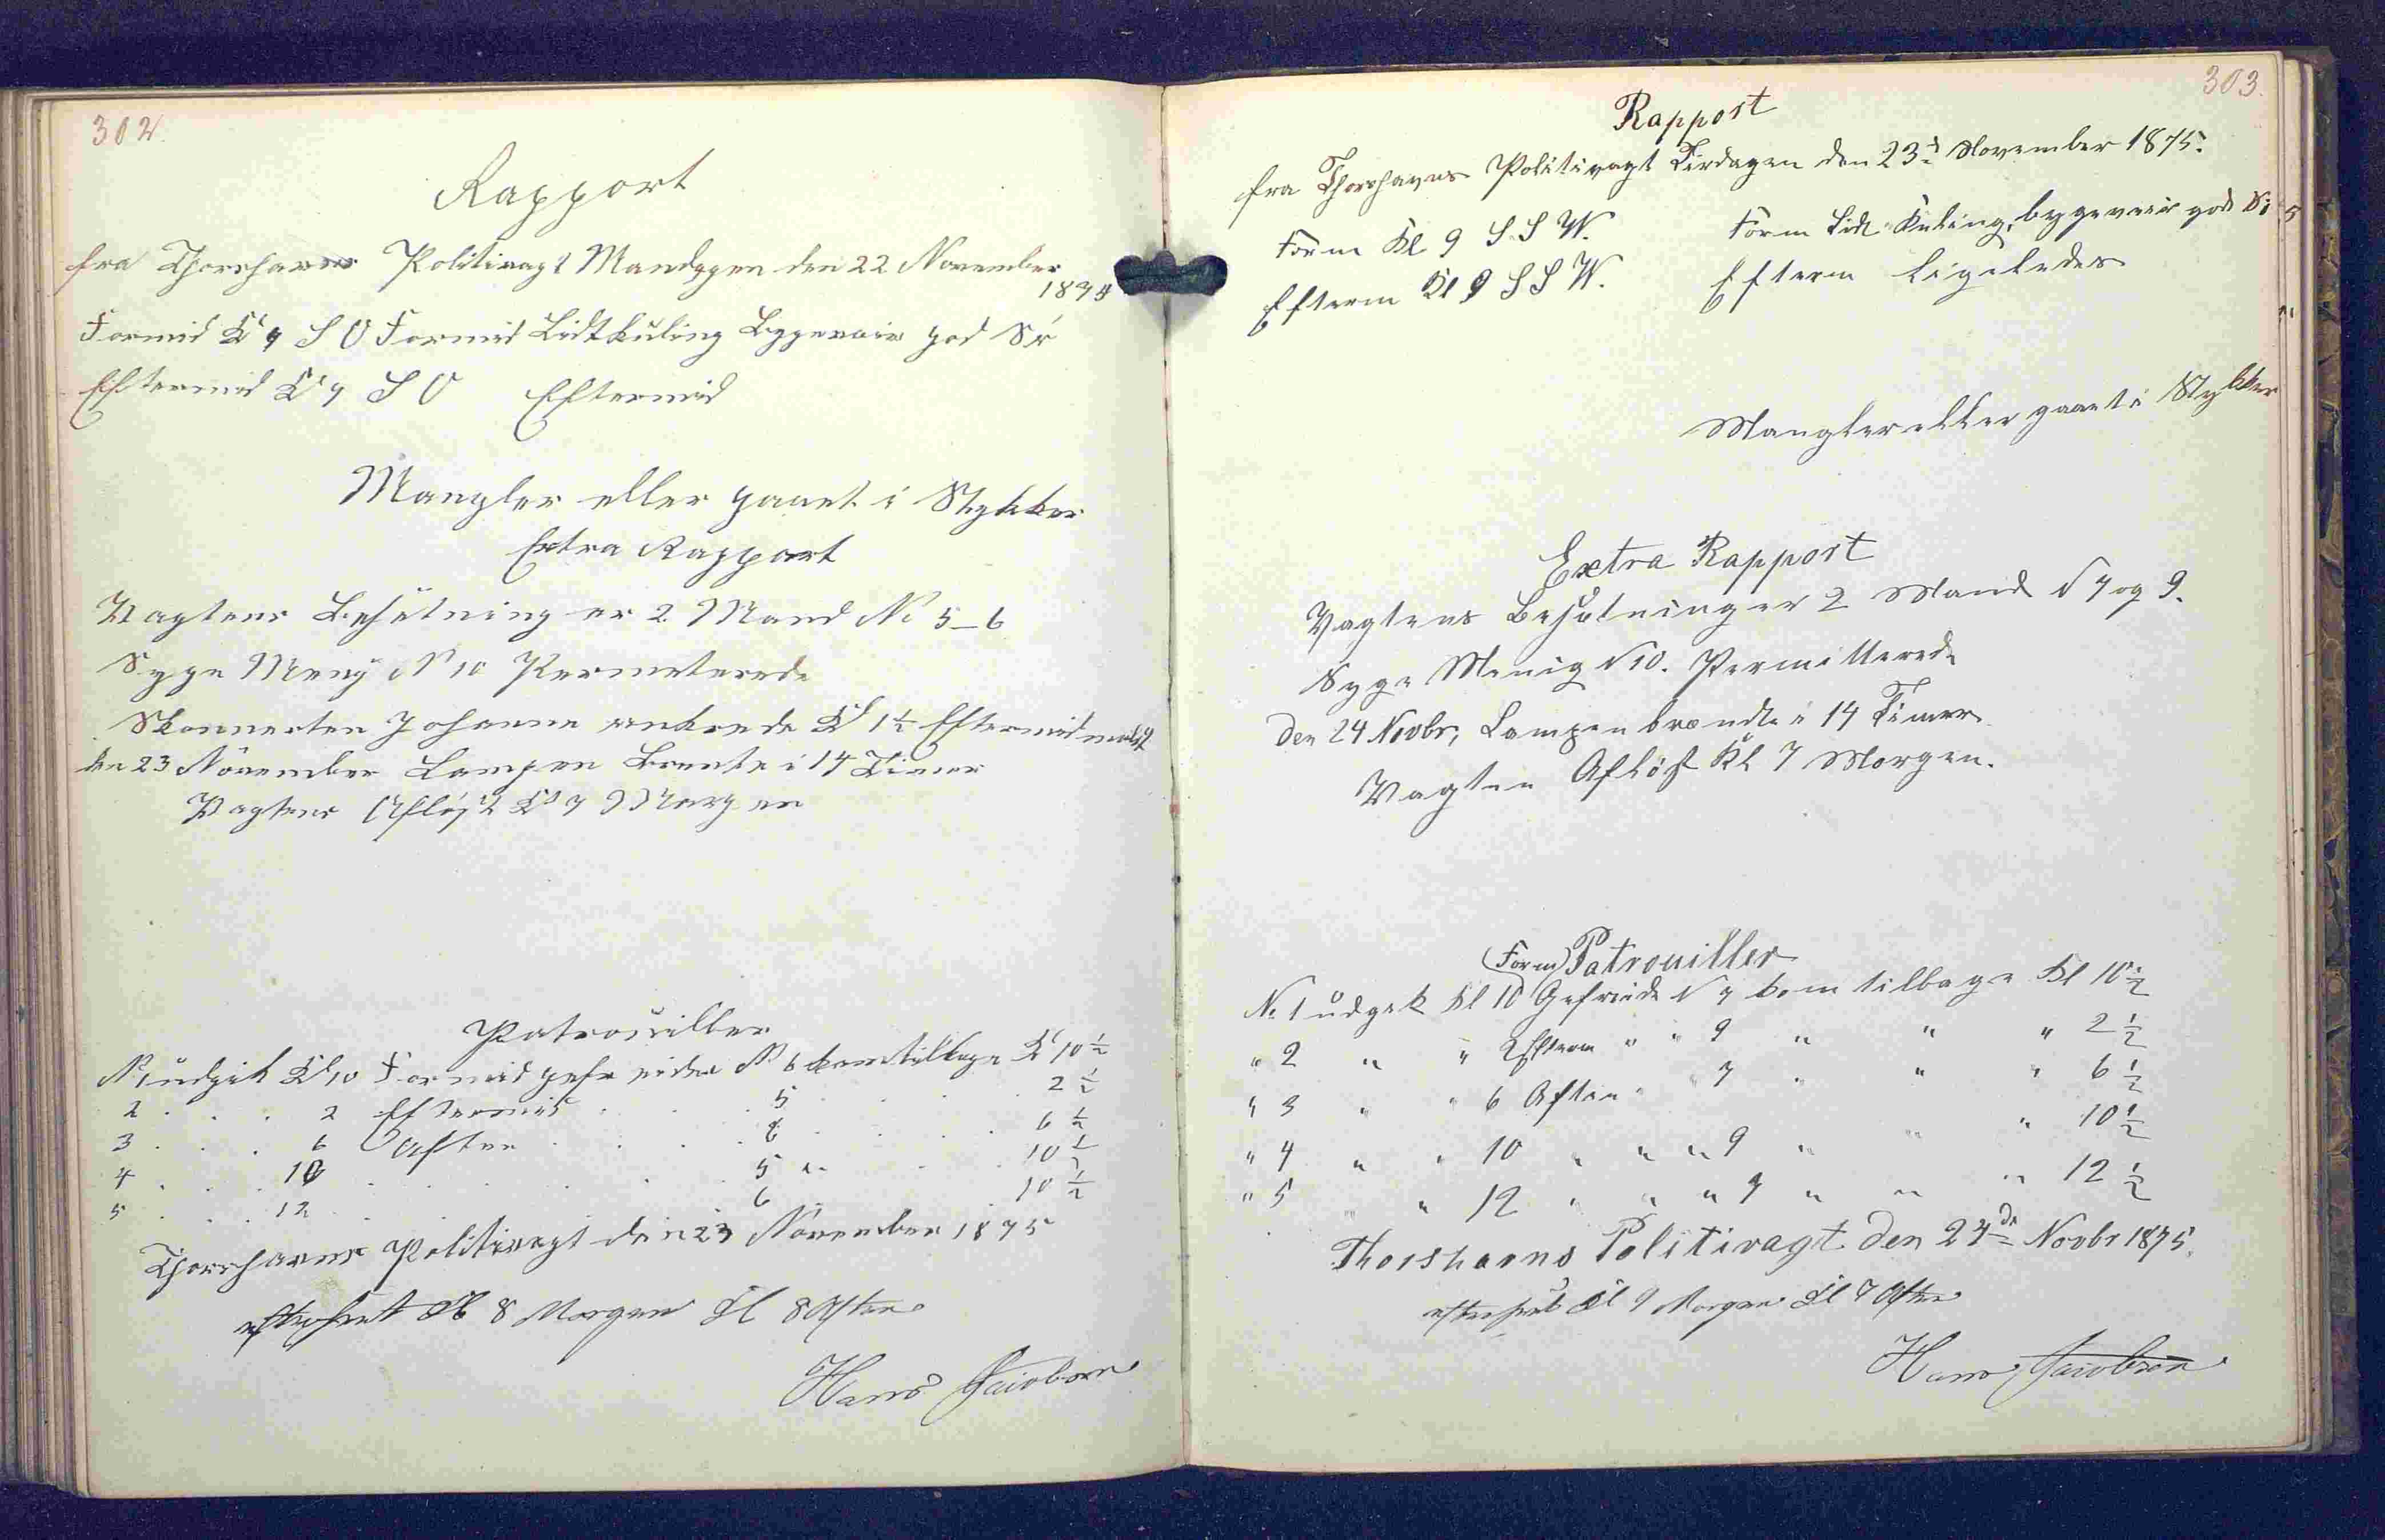 302.
Rapport
fra Thorshavns Politivagt Mandagen den 22 November
1875
Formid Kl 9 S O Formid Lidt Kuling Byggevair god Sr
Eftermid Kl 9 S O Eftermid
Mangler eller gaaet i Stykker
Extra Rapport
Vagtens Besætning er 2 Mand No 5-6
Syge Meny No 10 Permeterede
Skonnerten Johanne ankrede Kl 1½ Eftermid
den 23 November Lampen Brente i 14 Timer
Vagtens Afløst Kl 7 Morgen
Patrouiller
No 1 udgik Kl 10 Formid gefreider No 6 kom tilbage Kl 10 ½
2 . . . 2 Eftermid . . . 5 . . . 2 ½
3 . . . 6 Aften . . . 6 . . . 6 ½
4 . . . 10 . . . 5 " . . 10 ½
5 . . . 12 . . . 6 . . . 10 ½
Thorshavns Politivagt den 23 November 1875
efterseet Kl 8 Morgen Kl 8 Aften
Hans Jacobsen
303.
Rapport
fra Thorshavns Politivagt Tirdagen den 23d November 1875.
Form Kl 9 S S W. Form Lidt Kuling, bygeveir god
Efterm Kl 9 S S W. Efterm Ligeledes
Mangler eller gaaet i Stykker
Extra Rapport
Vagtens Besætning er 2 Mand N 7 og 9.
Syge Menig N 10. Permitterede
Den 24 Novbr, Lampen brændte i 14 Timer.
Vagten Afløst Kl 7 Morgen.
(Form) Patrouiller
No 1 udgik Kl 10 Gefreide N 7 kom tilbage Kl 10 ½
" 2 " " 2 Efterm " " 9 " " " 2 ½
" 3 " " 6 Aften " " 7 " " " 6 ½
" 4 " " 10 " " " 9 " " " 10 ½
" 5 " " 12 " " " 7 " " " 12 ½
Thorshavns Politivagt den 24de Novbr 1875.
efterseet Kl 9 Morgen Kl 7 Aften
Hans Jacobsen